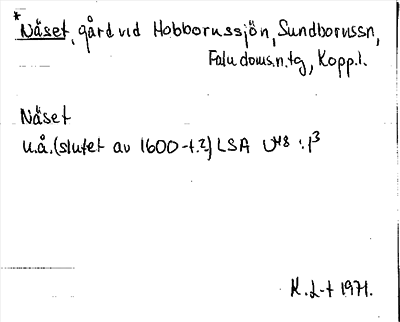 *Näset, gård vid Hobborussjön, Sundbornssn,
Falu doms.n.tg, Kopp.l.
Näset
u.å. (slutet av 1600-t.?) LSA U48 :1³
K.L-t 1971.